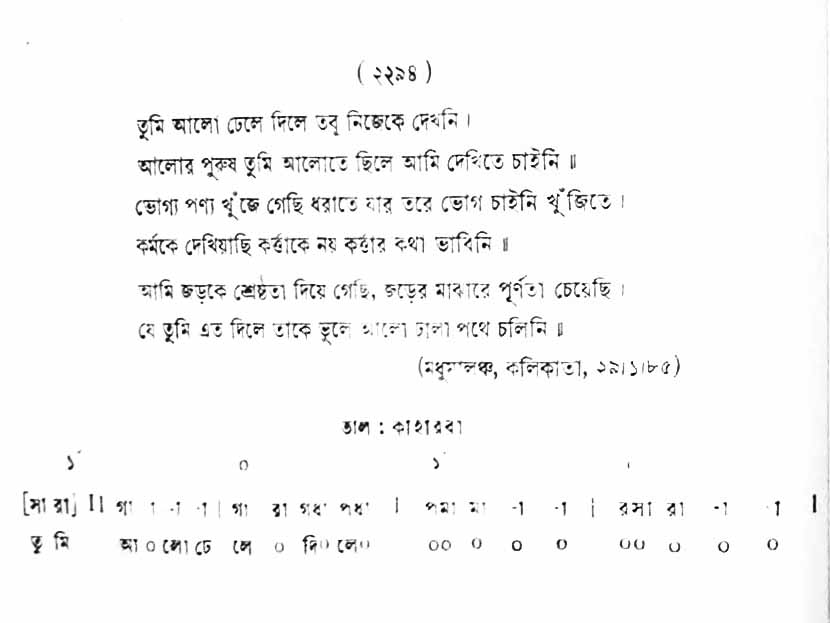 (২২৯৪)
তুমি আলো ঢেলে দিলে তবু নিজেকে দেখনি ।
আলোর পুরুষ তুমি আলোতে ছিলে আমি দেখিতে চাইনি ॥
ভোগ্য পণ্য খুঁজে গেছি ধরাতে যার তরে ভোগ চাইনি খুঁজিতে ।
কর্মকে দেখিয়াছি কর্ত্তাকে নয় কর্ত্তার কথা ভাবিনি ॥
আমি জড়কে শ্রেষ্ঠতা দিয়ে গেছি, জড়ের মাঝারে পূর্ণতা চেয়েছি ।
যে তুমি এত দিলে তাকে ভুলে আলো ঢালা পথে চলিনি ॥
(মধুমালঞ্চ, কলিকাতা, ২৯।১।৮৫)
তাল : কাহারবা
১´ ০ ১´
[সা রা] II গা া -া -া | গা রা গধা পধা | পমা মা -া -া | রসা রা -া -া I
তু মি আ ০ লো ঢে লে ০ দি০ লে০ ০০ ০ ০ ০ ০০ ০ ০ ০